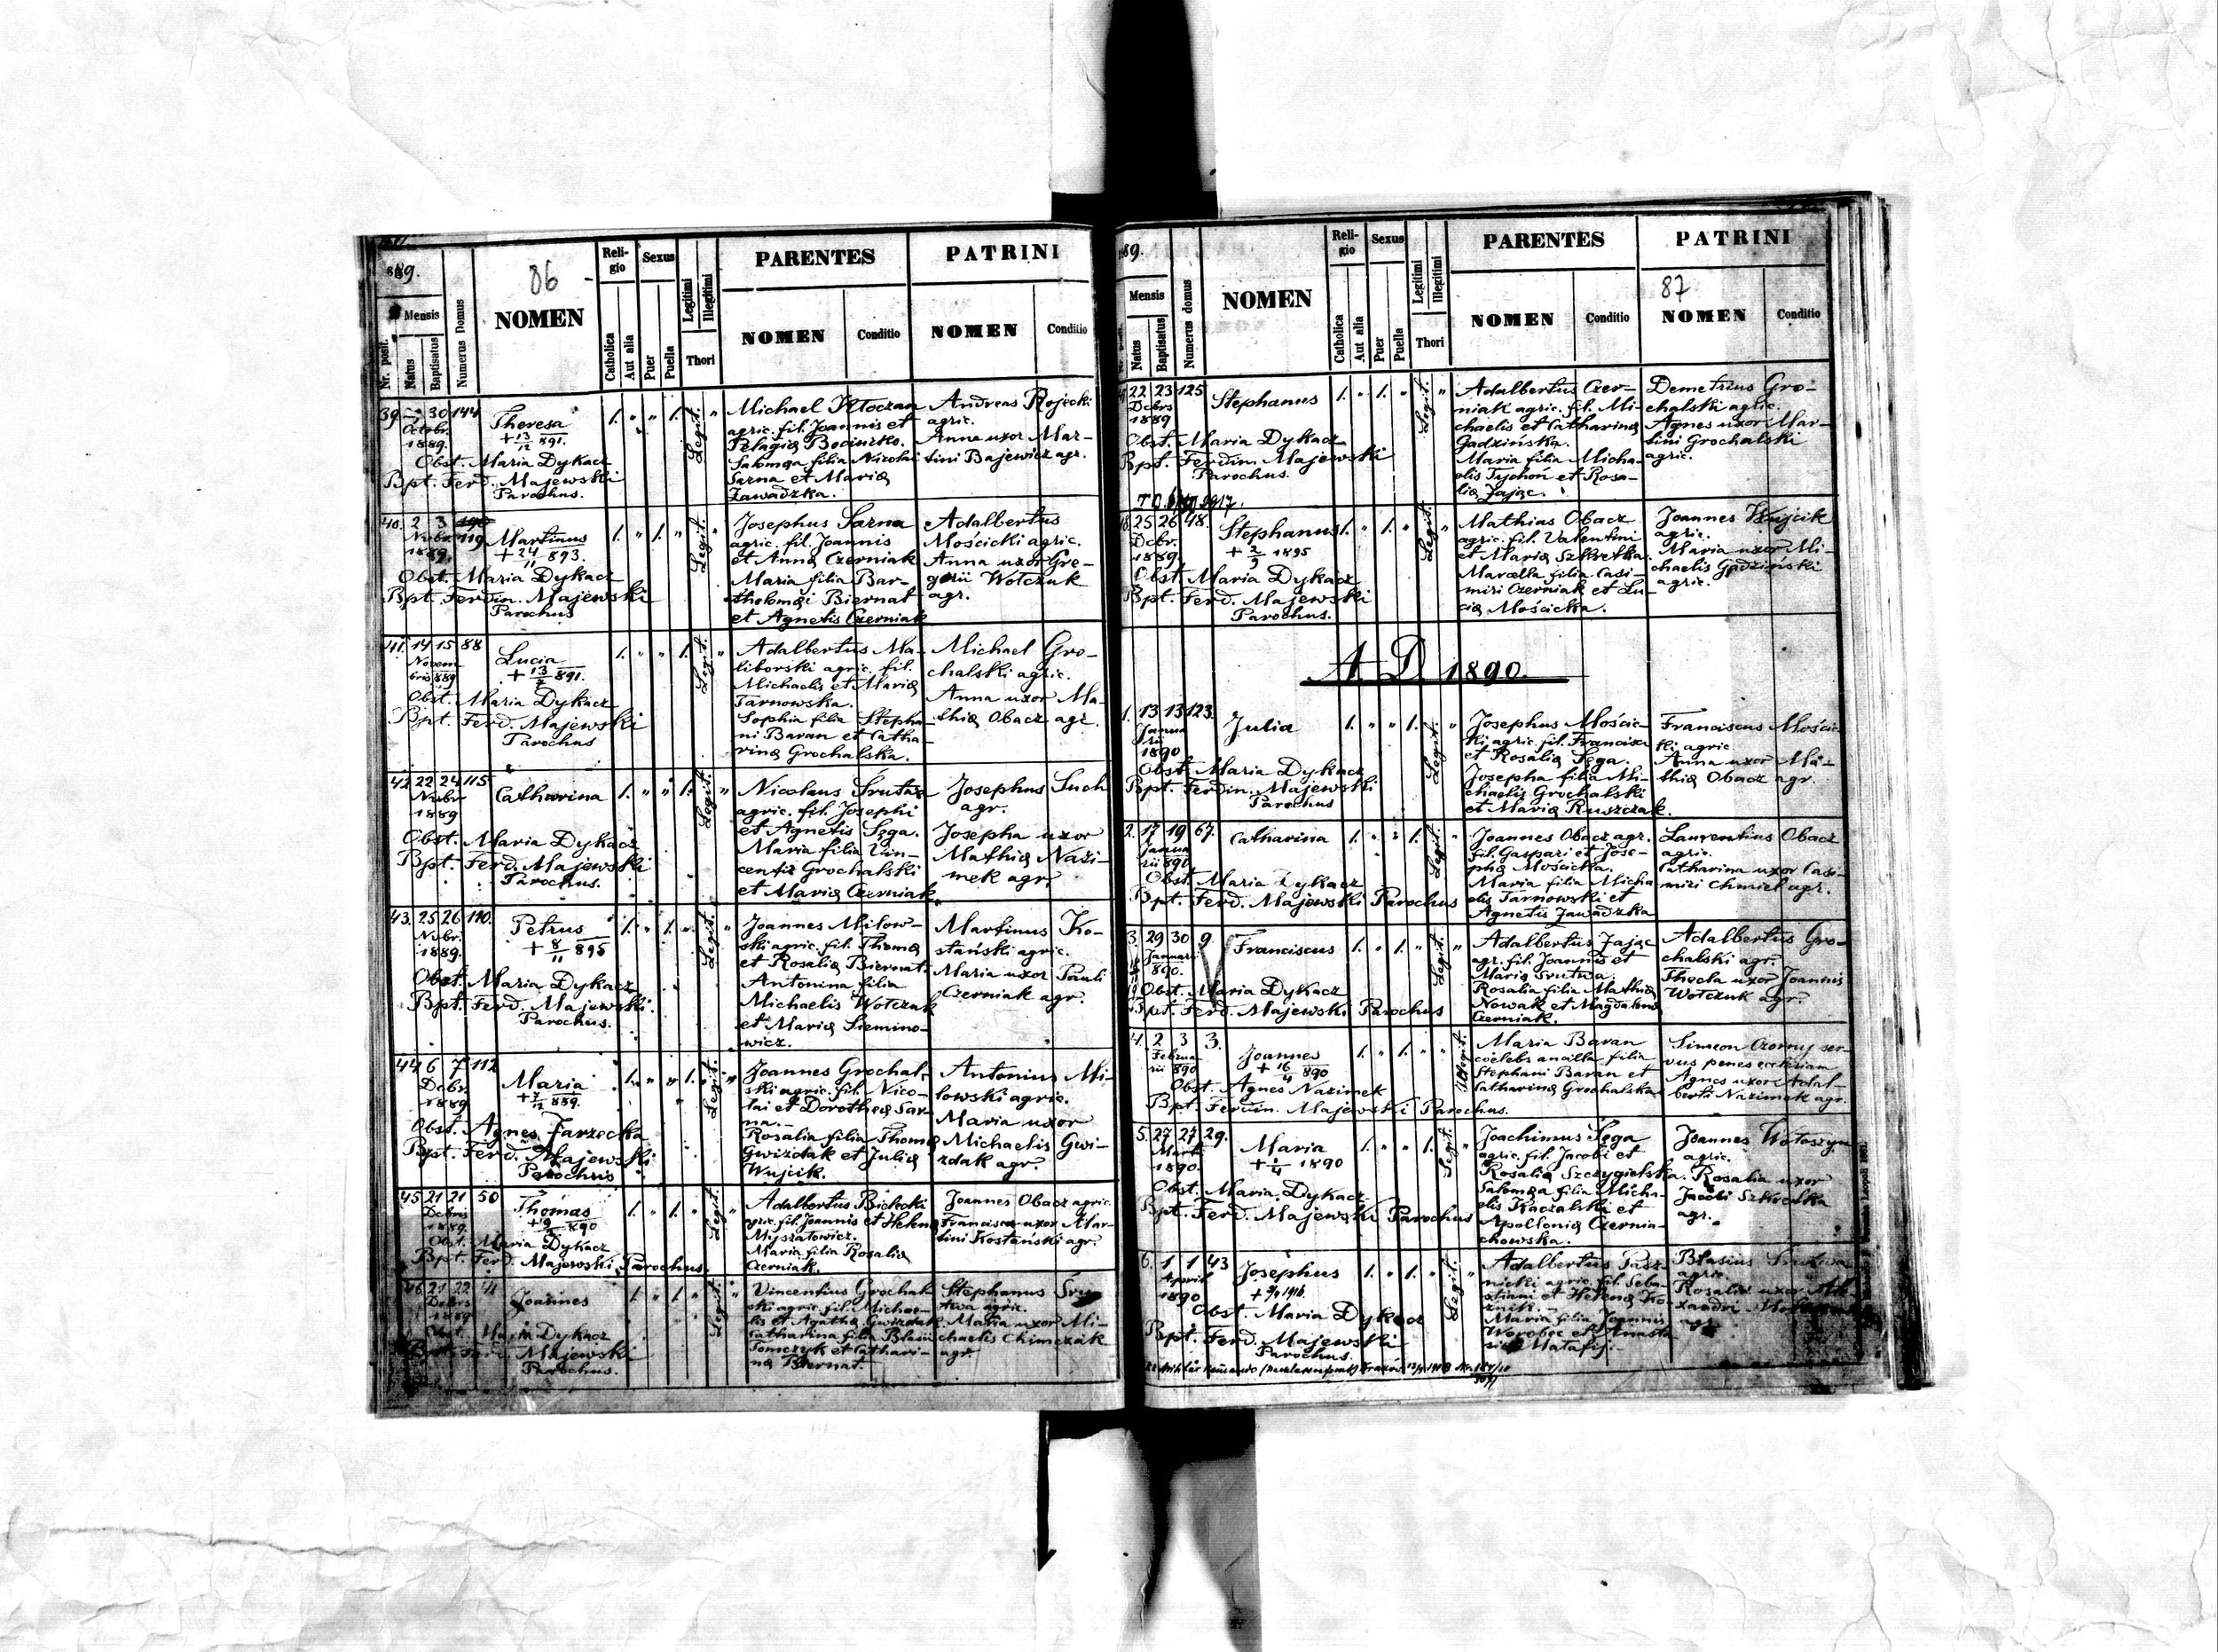 889.
86
Nr. posit.
Mensis
Natus
Baptisatus
Numerus Domus
NOMEN
Reli-
gio
Catholica
Aut alia
Sexus
Puer
Puella
Legitimi
Illegitimi
Thori
PARENTES
NOMEN
Conditio
PATRINI
NOMEN
Conditio
39. 30 144
Octobr.
1889.
Theresa
+ 13/12 891.
Obst. Maria Dykacz
Bpt. Ferd. Majewski
Parochus.
1. " " 1. Legit. "
Michael Kłoczan
agric. fil. Joannis et
Pelagiæ
Salomea filia Nicolai
Sarna et Mariæ
Zawadzka.
Andreas Rojecki
agric.
Anna uxor Mar-
tini Bajewicz agr.
40. 2 3 119
Nvbr.
1889.
Martinus
+ 24/11 893.
Obst. Maria Dykacz
Bpt. Ferdin. Majewski
Parochus
1. " 1. " Legit. "
Josephus Sarna
agric. fil. Joannis
et Annæ Czerniak
Maria filia Bar-
tholomæi Biernat
et Agnetis Czerniak
Adalbertus
Mościcki agric.
Anna uxor Gre-
gorii Wołczuk
agr.
41. 14 15 88
Novem-
bris 889
Lucia
+ 13/7 891.
Obst. Maria Dykacz
Bpt. Ferd. Majewski
Parochus
1. " " 1. Legit. "
Adalbertus Ma-
liborski agric. fil.
Michaelis et Mariæ
Tarnowska.
Sophia filia Stepha-
ni Baran et Catha-
rinæ Grochalska.
Michael Gro-
chalski agric.
Anna uxor Ma-
thiæ Obacz agr.
42. 22 24 115
Nvbr
1889
Catharina
Obst. Maria Dykacz
Bpt. Ferd. Majewski
Parochus.
1. " " 1. Legit. "
Nicolaus Srutwa
agric. fil. Josephi
et Agnetis Sęga.
Maria filia Vin-
centii Grochalski
et Mariæ Czerniak
Josephus Such
agr.
Josepha uxor
Mathiæ Nazi-
mek agr.
43. 25 26 110.
Nvbr.
1889.
Petrus
+ 8/11 895
Obst. Maria Dykacz
Bpt. Ferd. Majewski.
Parochus.
1. " 1. " Legit. "
Joannes Milow-
ski agric. fil. Thomæ
et Rosaliæ Biernat.
Antonina filia
Michaelis Wołczuk
et Mariæ Siemino-
wicz.
Martinus Ko-
stański agric.
Maria uxor Pauli
Czerniak agr.
44 6 7 112
Dcbr.
1889
Maria
+ 7/12 889.
Obst. Agnes Jarzecka
Bpt. Ferd. Majewski
Parochus
1. " " 1. Legit. "
Joannes Grochal-
ski agric. fil. Nico-
lai et Dorotheæ Sar-
na.
Rosalia filia Thomæ
Gwizdak et Juliæ
Wujcik.
Antonius Mi-
lowski agric.
Maria uxor
Michaelis Gwi-
zdak agr.
45 21 21 50
Dcbris
1889.
Thomas
Obst. Maria Dykacz
Bpt. Ferd. Majewski Parochus.
1. " 1. " Legit. "
Adalbertus Bichecki
agric. fil. Joannis et Helenæ
Myszatowicz.
Maria filia Rosaliæ
Czerniak.
Joannes Obacz agric.
Francisca uxor Mar-
tini Kostański agr.
46 21 22
Dcbris
1889
Joannes
Obst. Maria Dykacz
Majewski
Parochus.
1. " 1. " Legit. "
Vincentius Grochal-
ski agric. fil. Michae-
lis et Agathæ Gwizdak
Catharina filia Blasii
Tomczyk et Cathari-
næ Biernat
Stephanus Sru-
twa agric.
Maria uxor Mi-
chaelis Chimczak
agr.
89.
87
Mensis
Natus
Baptisatus
Numerus domus
NOMEN
Reli-
gio
Catholica
Aut alia
Sexus
Puer
Puella
Legitimi
Illegitimi
Thori
PARENTES
NOMEN
Conditio
PATRINI
NOMEN
Conditio
22 23 125
Dcbrs
1889
Stephanus
Obst. Maria Dykacz
Bpt. Ferdin. Majewski
Parochus.
1. " 1. " Legit. "
Adalbertus Czer-
niak agric. fil. Mi-
chaelis et Catharinæ
Gadzińska.
Maria filia Micha-
elis Tychoń et Rosa-
liæ Zając.
Demetrius Gro-
chalski agric.
Agnes uxor Mar-
tini Grochalski
agric.
25 26 48.
Dcbr.
1889.
Stephanus
+ 2/9 1895
Obst. Maria Dykacz
Bpt. Ferd. Majewski
Parochus.
1. " 1. " Legit. "
Mathias Obacz
agric. fil. Valentini
et Mariæ Szkretka.
Marcella filia Casi-
miri Czerniak et Lu-
ciæ Mościcka.
Joannes Wujcik
agric.
Maria uxor Mi-
chaelis Gadziński
agric.
A. D. 1890.
1. 13 13 123.
Janua-
rii
1890
Julia
Obst. Maria Dykacz
Bpt. Ferdin. Majewski
Parochus
1. " " 1. Legit. "
Josephus Mościc-
ki agric. fil. Francisci
et Rosaliæ Sęga.
Josepha filia Mi-
chaelis Grochalski
et Mariæ Ruszczak.
Franciscus Mościc-
ki agric
Anna uxor Ma-
thiæ Obacz agr.
2. 17 19 67.
Janua-
rii 890
Catharina
Obst. Maria Dykacz
Bpt. Ferd. Majewski Parochus
1. " " 1. Legit. "
Joannes Obacz agr.
fil. Gaspari et Jose-
phæ Mościcka.
Maria filia Micha-
elis Tarnowski et
Agnetis Zawadzka
Laurentius Obacz
agric.
Catharina uxor Casi-
miri Chmiel agr.
3. 29 30 9.
Januari
890.
Franciscus
Obst. Maria Dykacz
Bpt. Ferd. Majewski Parochus
1. " 1. " Legit. "
Adalbertus Zając
agr. fil. Joannis et
Mariæ Srutwa.
Rosalia filia Mathiæ
Nowak et Magdalenæ
Czerniak.
Adalbertus Gro-
chalski agr.
Thecla uxor Joannis
Wołczuk agr.
4. 2 3 3.
Februa-
rii 890
Joannes
+ 16/4 890
Obst. Agnes Nazimek
Bpt. Ferdin. Majewski Parochus.
1. " 1. " " Illegit.
Maria Baran
coelebs ancilla filia
Stephani Baran et
Catharinæ Grochalska
Simeon Czorny ser-
vus penes ecclesiam
Agnes uxor Adal-
berti Nazimek agr.
5. 27 27 29.
Martii
1890.
Maria
+ 1/4 1890
Obst. Maria Dykacz
Bpt. Ferd. Majewski Parochus
1. " " 1. Legit. "
Joachimus Sęga
agric. fil. Jacobi et
Rosaliæ Szczygielska.
Salomea filia Micha-
elis Kaczalski et
Apolloniæ Czernia-
chowska.
Joannes Wołoszyn
agric.
Rosalia uxor
Jacobi Szkretka
agr.
6. 1 1 43
Aprilis
1890
Josephus
Obst. Maria Dykacz
Bpt. Ferd. Majewski
Parochus.
1. " 1. " Legit. "
Adalbertus
agric. fil. Seba-
stiani et Helenæ Ko-
znik.
Maria filia Joannis
Worobec et Anasta-
siæ Matafij.
Blasius Srutwa
agric.
Rosalia uxor Ale-
xandri
agr.